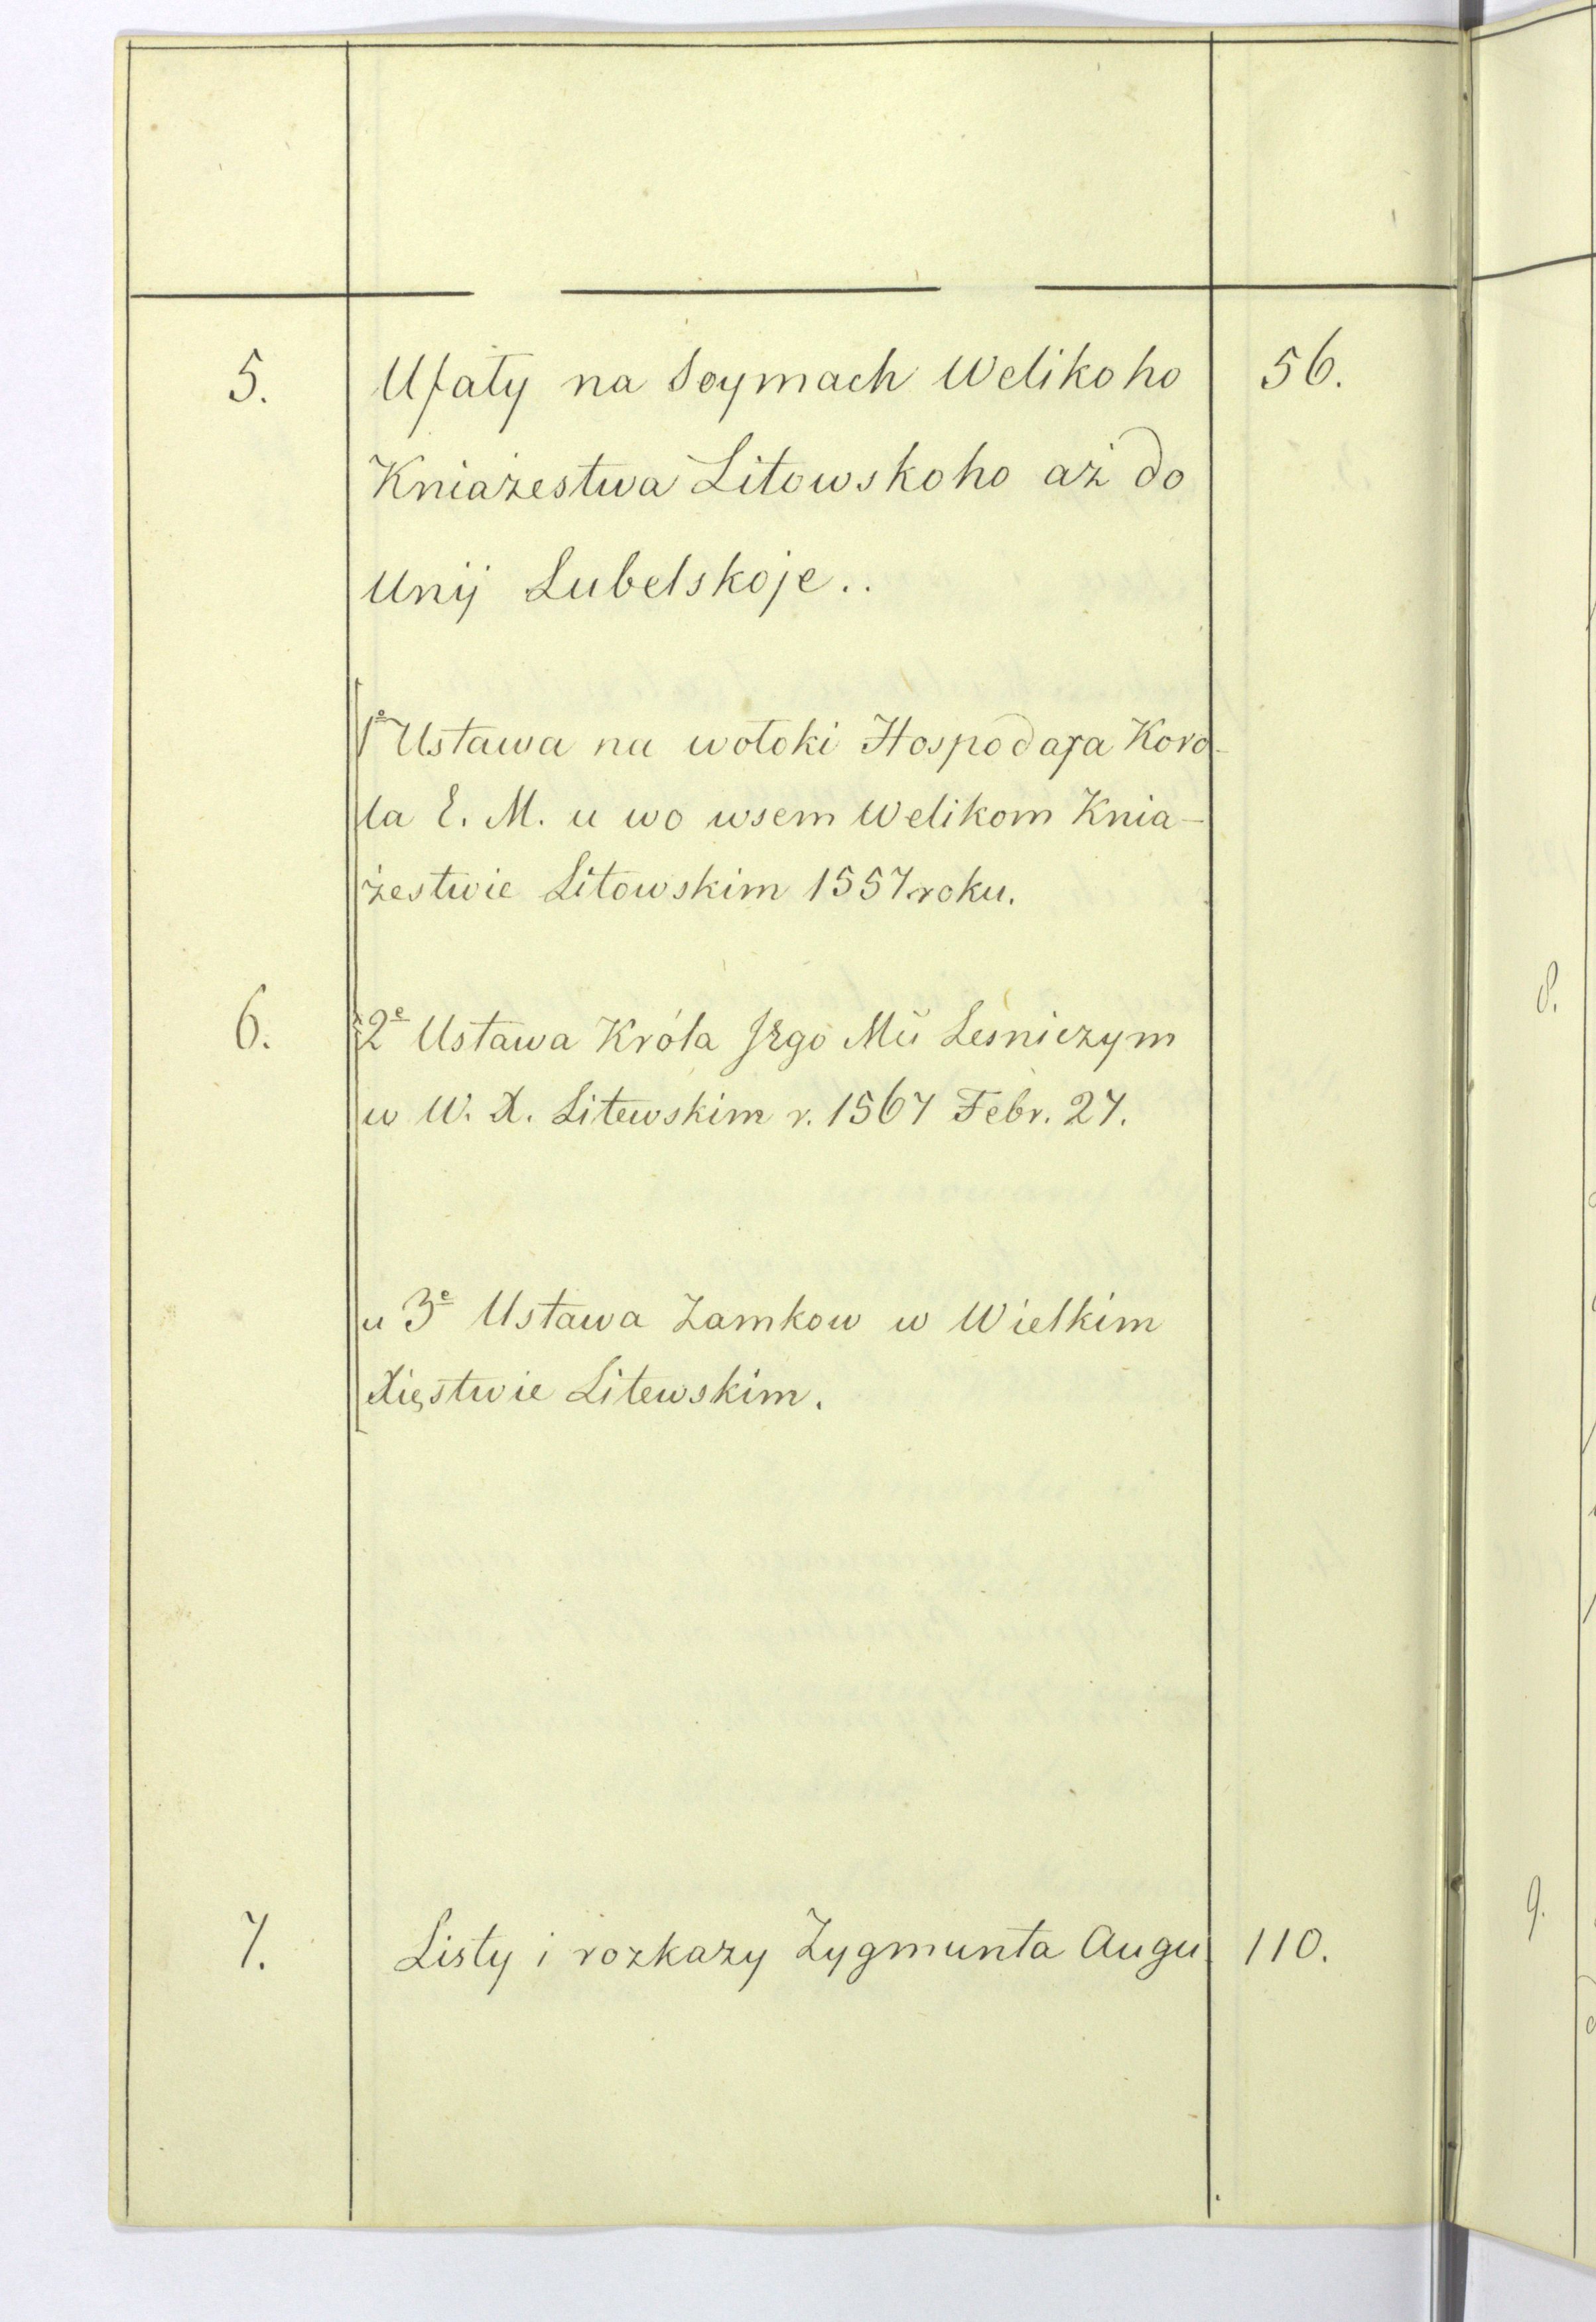 5. Ufały na Soymach Welikoho 56.
Kniażestwa Litowskoho aż do
Unij Lubelskoje..
1e Ustawa na wołoki Hospodara Koro-
la E. M. u wo wsem Welikom Knia-
żestwie Litowskim 1557 roku.
6. 2e Ustawa Króla Jego Mci Leśniczym
w W. X. Litewskim r. 1567 Febr. 27.
u 3e Ustawa Zamkow w Wielkim
Xięstwie Litewskim.
7. Listy i rozkazy Zygmunta Augu 110.
8.
9.